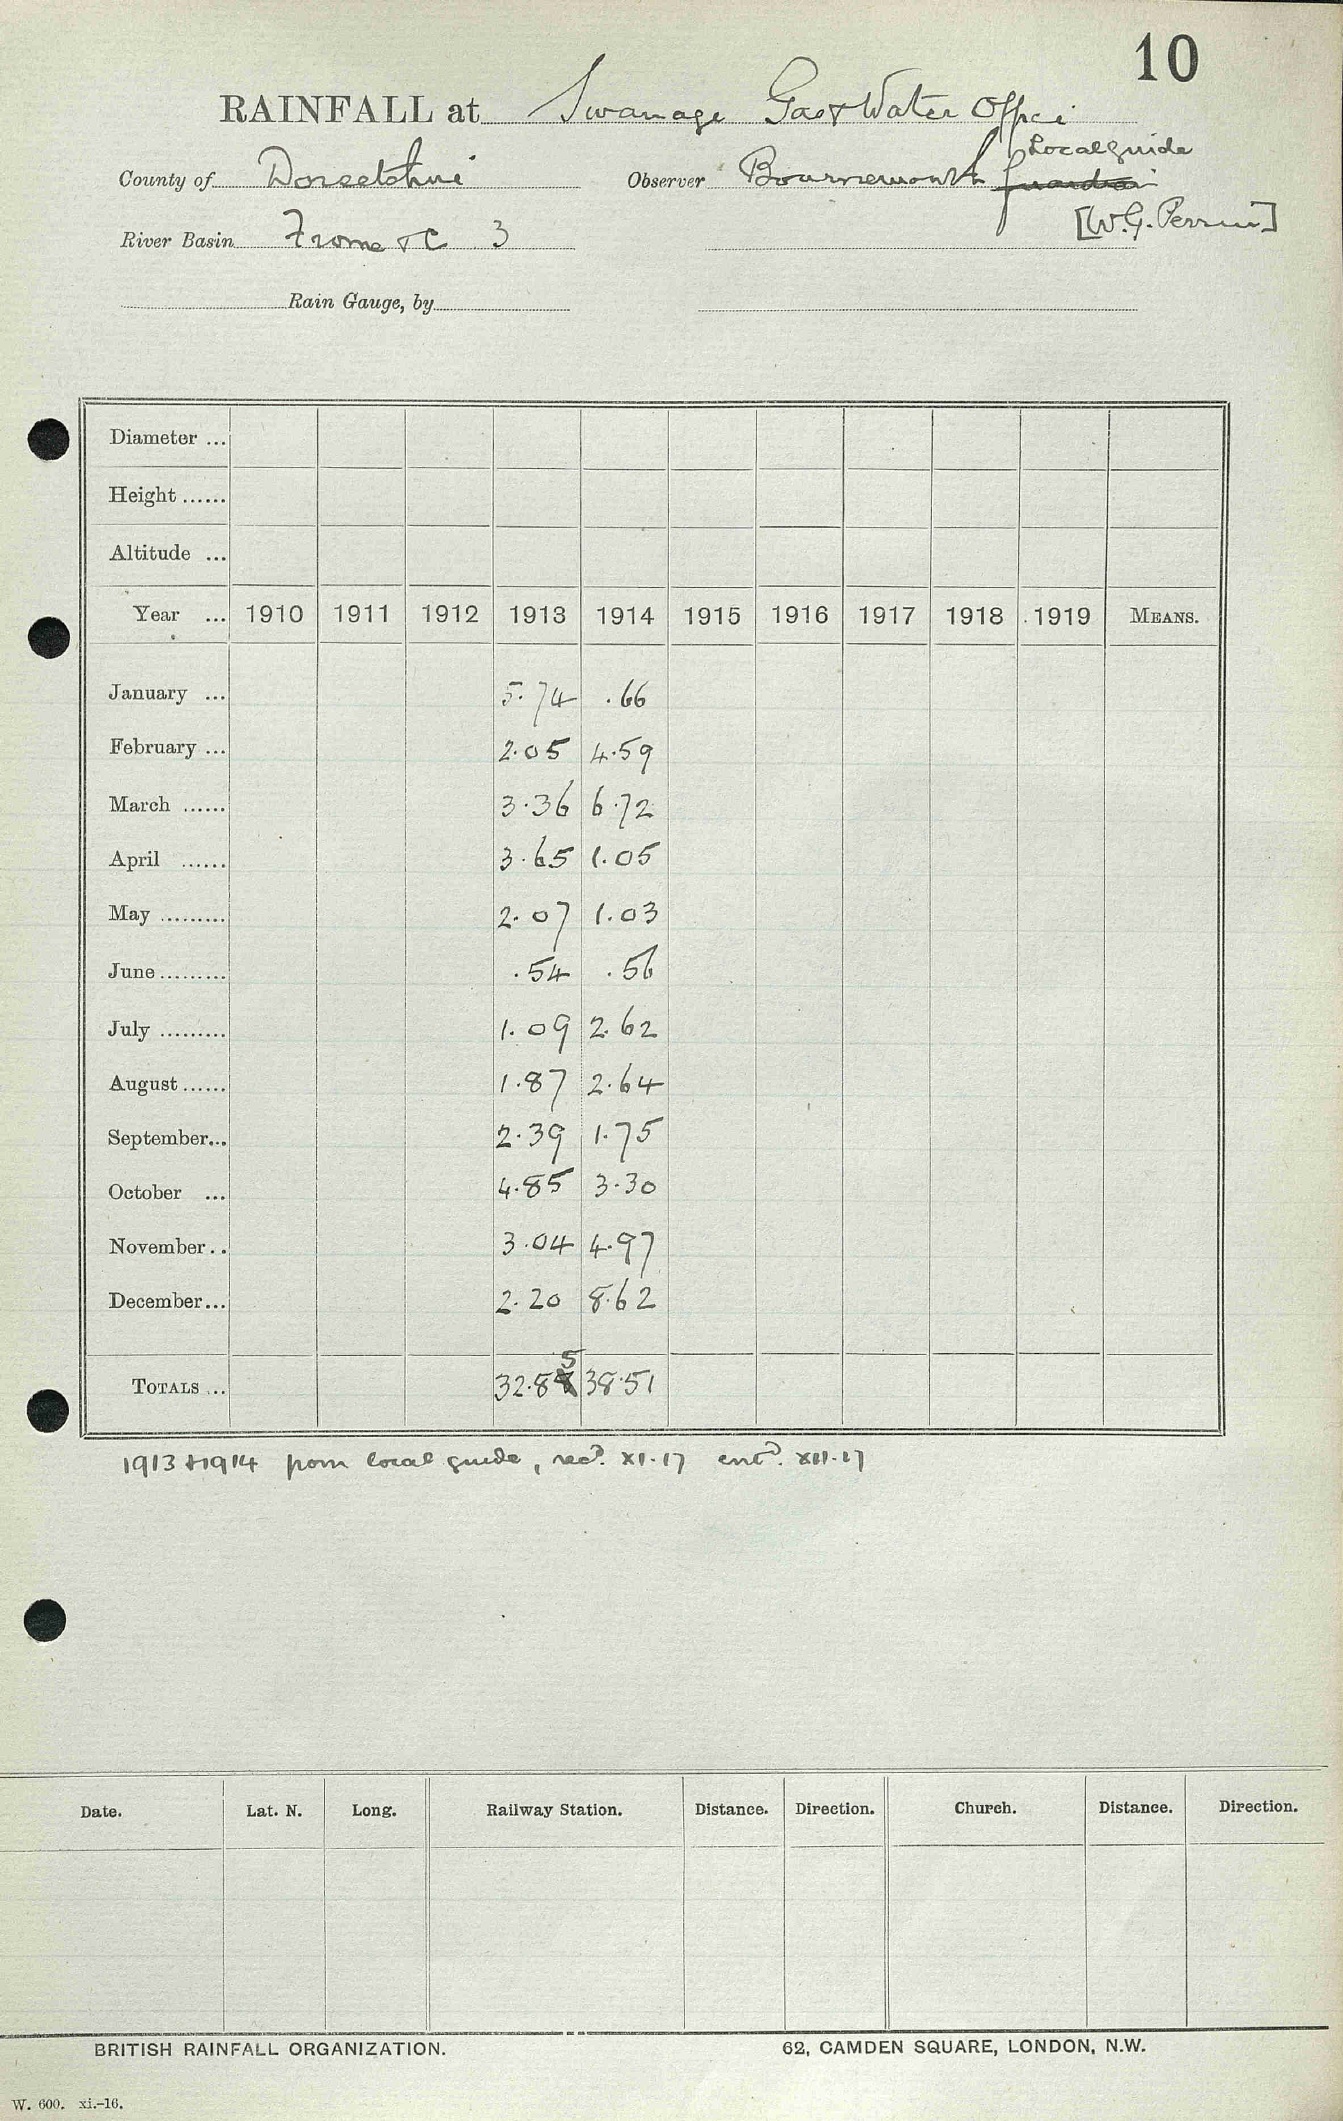 10
RAINFALL at Swanage Gas & Water Office
County of Dorsetshire Observer Bournemouth Local guide
[W.G. Perrin]
River Basin Frome &c 3
Rain Gauge, by
Diameter ...
Height ......
Altitude ...
Year ... 1910 1911 1912 1913 1914 1915 1916 1917 1918 1919 MEANS.
January ... 5.74 .66
February ... 2.05 4.59
March ...... 3.36 6.72
April ...... 3.65 1.05
May ......... 2.07 1.03
June ......... .54 .56
July ......... 1.09 2.62
August ...... 1.87 2.64
September... 2.39 1.75
October ... 4.85 3.30
November .. 3.04 4.97
December... 2.20 8.62
TOTALS ... 32.85 38.51
1913 & 1914 from local guide, recd. XI.17 entd. XII.17
Date. Lat. N. Long. Railway Station. Distance. Direction. Church. Distance. Direction.
BRITISH RAINFALL ORGANIZATION. 62, CAMDEN SQUARE, LONDON, N.W.
W. 600. xi.-16.